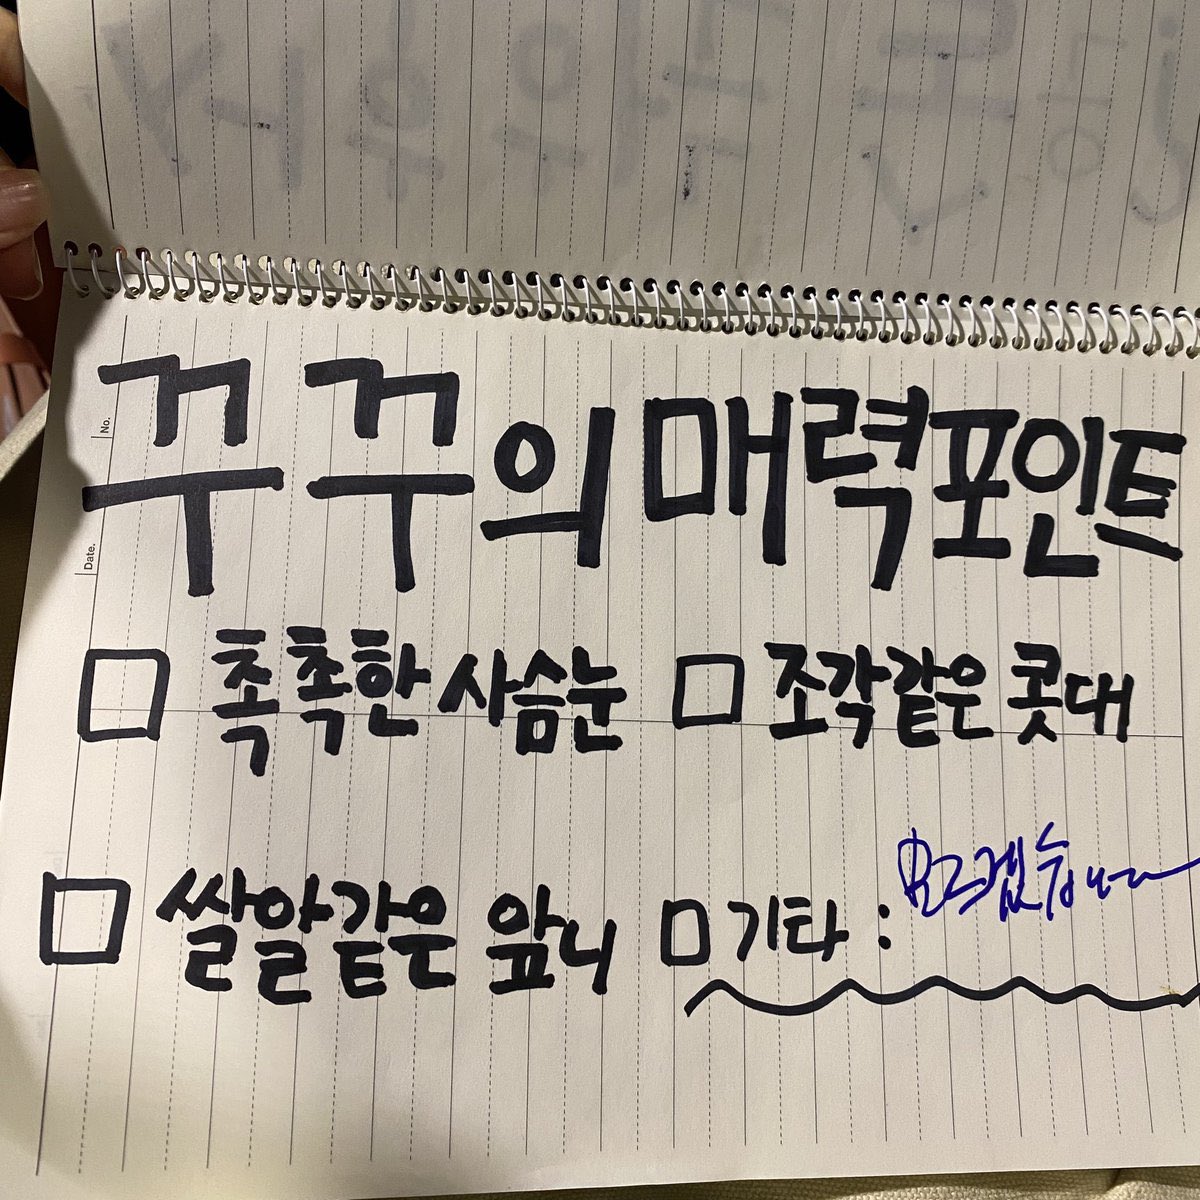 No.
Date.
꾸꾸의 매력포인트
□ 촉촉한 사슴눈 □ 조각같은 콧대
□ 쌀알같은 앞니 □ 기타 : 모르겠습니다